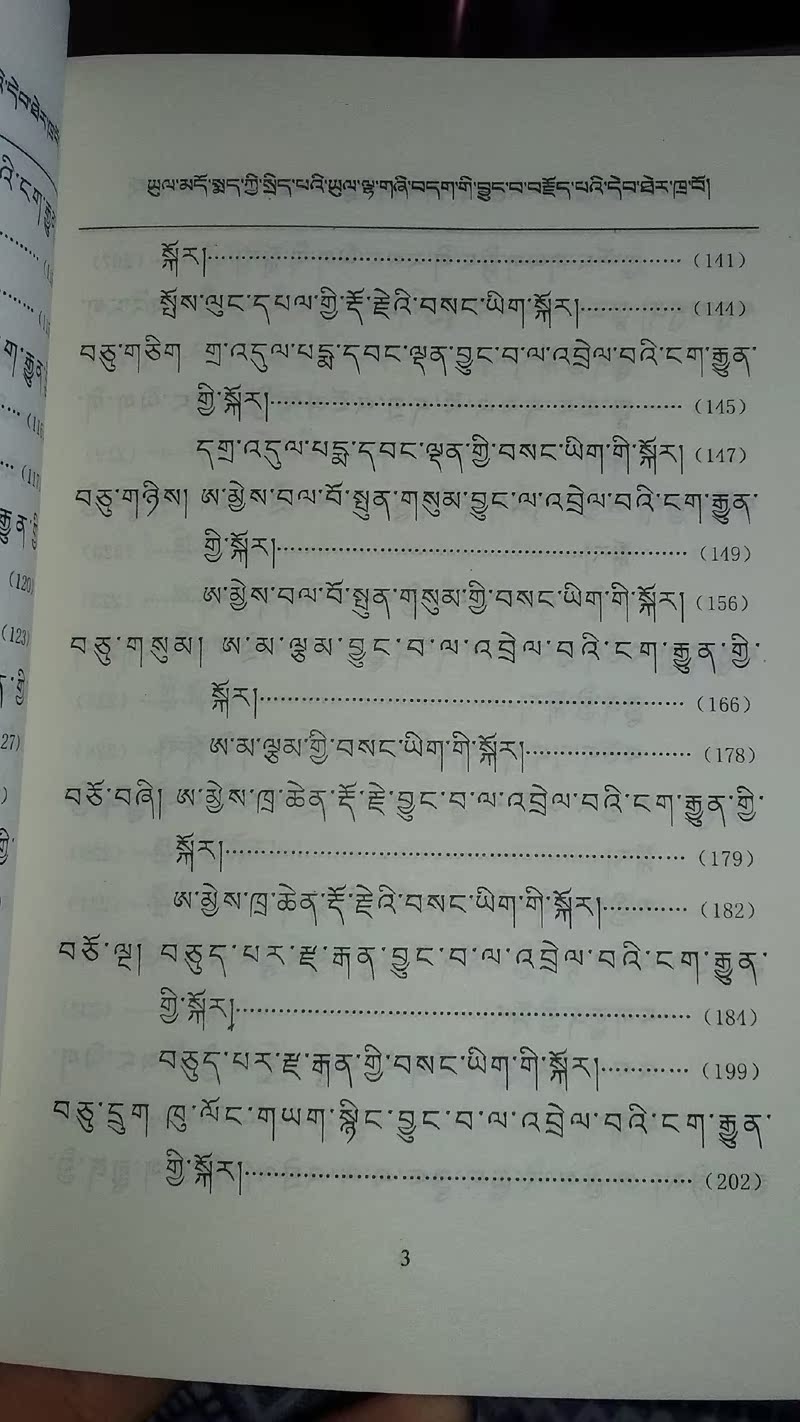 ཡུལ་མདོ་སྨད་ཀྱི་སྲིད་པའི་ཡུལ་ལྷ་གཞི་བདག་གི་བྱུང་བ་བརྗོད་པའི་དེབ་ཐེར་ཁྲ་བོ།
སྐོར།（141）
སྤོས་ལུང་དཔལ་གྱི་རྡོ་རྗེའི་བསང་ཡིག་སྐོར།（144）
བཅུ་གཅིག གྲ་འདུལ་པདྨ་དབང་ལྡན་བྱུང་བ་ལ་འབྲེལ་བའི་ངག་རྒྱུན་
གྱི་སྐོར།（145）
དགྲ་འདུལ་པདྨ་དབང་ལྡན་གྱི་བསང་ཡིག་གི་སྐོར།（147）
བཅུ་གཉིས། ཨ་མྱེས་བལ་བོ་སྤུན་གསུམ་བྱུང་ལ་འབྲེལ་བའི་ངག་རྒྱུན་
གྱི་སྐོར།（149）
ཨ་མྱེས་བལ་བོ་སྤུན་གསུམ་གྱི་བསང་ཡིག་གི་སྐོར།（156）
བཅུ་གསུམ། ཨ་མ་ལྕམ་བྱུང་བ་ལ་འབྲེལ་བའི་ངག་རྒྱུན་གྱི་
སྐོར།（166）
ཨ་མ་ལྕམ་གྱི་བསང་ཡིག་གི་སྐོར།（178）
བཅོ་བཞི། ཨ་མྱེས་ཁྲ་ཆེན་རྡོ་རྗེ་བྱུང་བ་ལ་འབྲེལ་བའི་ངག་རྒྱུན་གྱི་
སྐོར།（179）
ཨ་མྱེས་ཁྲ་ཆེན་རྡོ་རྗེའི་བསང་ཡིག་གི་སྐོར།（182）
བཅོ་ལྔ། བཅུད་པར་རྫ་རྒན་བྱུང་བ་ལ་འབྲེལ་བའི་ངག་རྒྱུན་
གྱི་སྐོར།（184）
བཅུད་པར་རྫ་རྒན་གྱི་བསང་ཡིག་གི་སྐོར།（199）
བཅུ་དྲུག ཁུ་ལོང་གཡག་སྙིང་བྱུང་བ་ལ་འབྲེལ་བའི་ངག་རྒྱུན་
གྱི་སྐོར།（202）
3